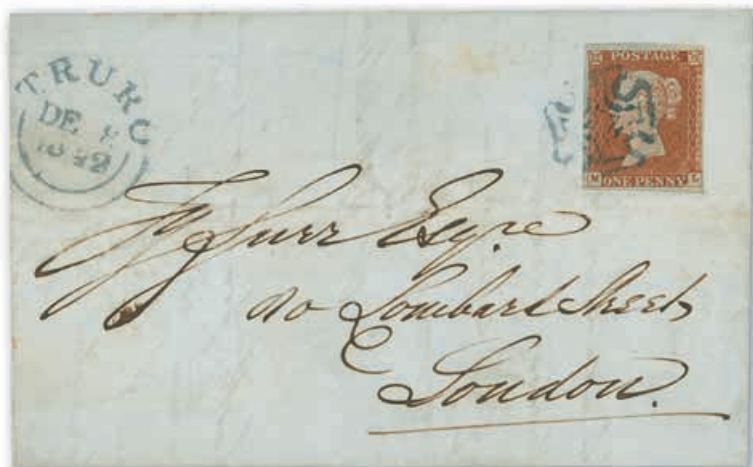 TRURO
DE
1842
POSTAGE
ONE PENNY
M L
Surr Esqre
80 Lombard Street
London.